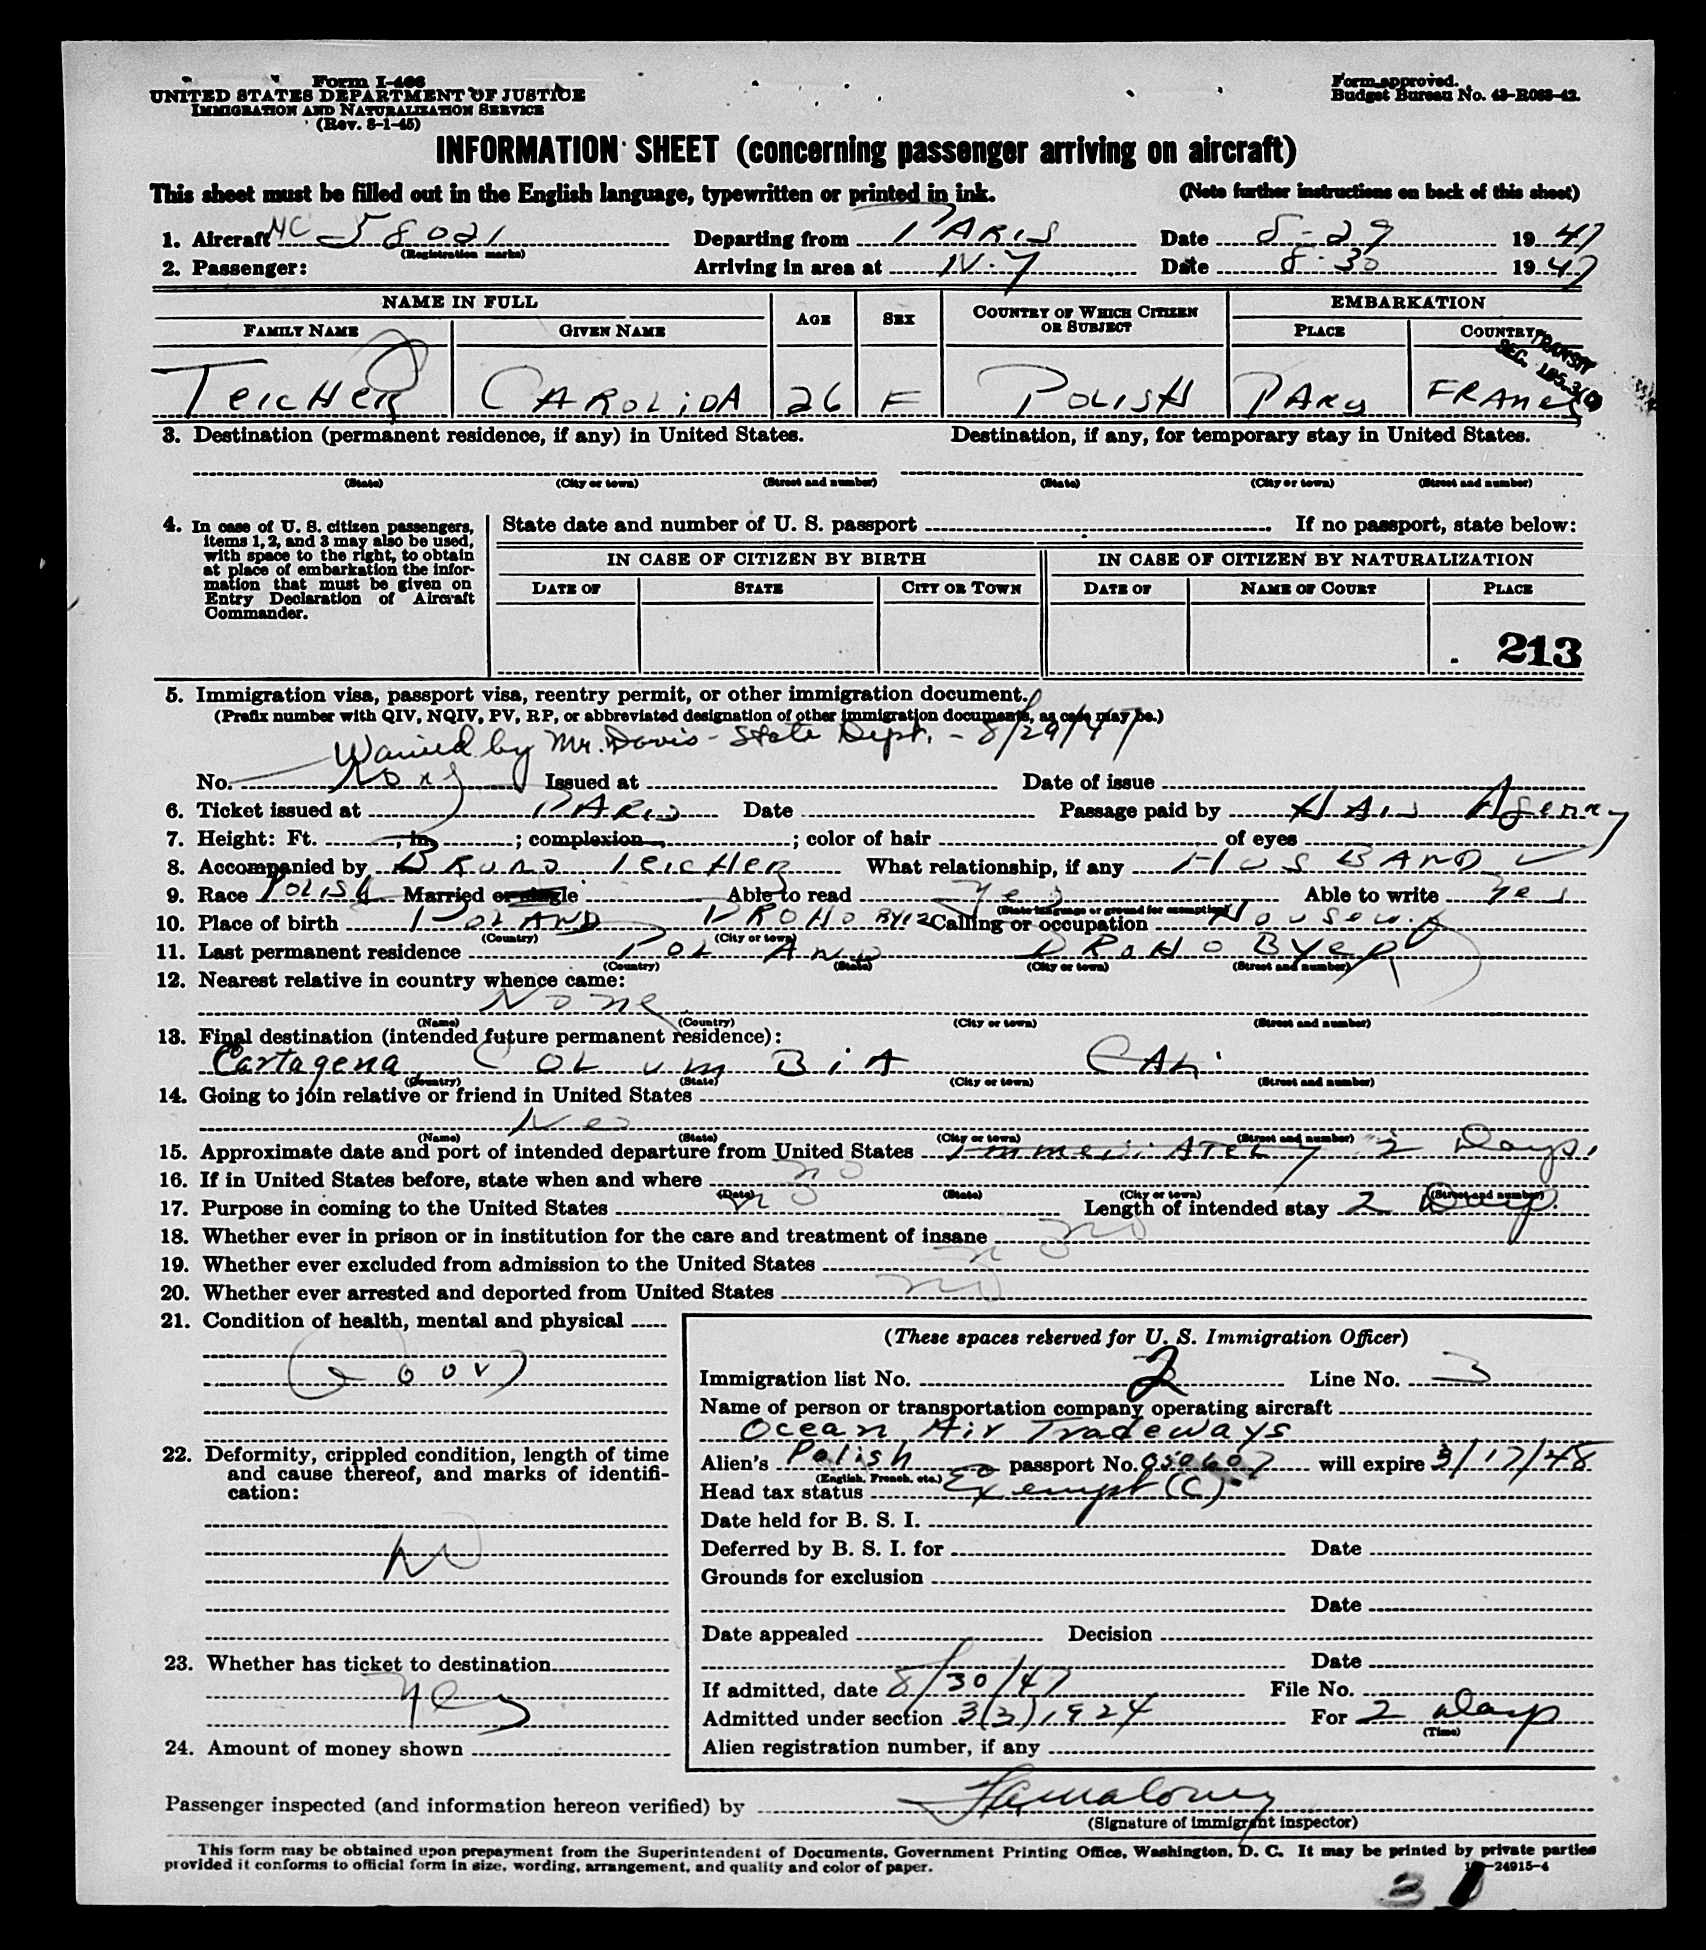 Form I-466
UNITED STATES DEPARTMENT OF JUSTICE
IMMIGRATION AND NATURALIZATION SERVICE
(Rev. 8-1-45)
Form approved.
Budget Bureau No. 43-R063-42.
INFORMATION SHEET (concerning passenger arriving on aircraft)
This sheet must be filled out in the English language, typewritten or printed in ink. (Note further instructions on back of this sheet)
1. Aircraft NC 58021 Departing from PARIS Date 8-29 1947
(Registration marks)
2. Passenger: Arriving in area at N.Y Date 8-30 1947
NAME IN FULL AGE SEX COUNTRY OF WHICH CITIZEN OR SUBJECT EMBARKATION
FAMILY NAME GIVEN NAME PLACE COUNTRY
TRANSIT
SEC.
TeicHer CAROLiDA 26 F POLISH PARIS FRANCE
3. Destination (permanent residence, if any) in United States. Destination, if any, for temporary stay in United States.
(State) (City or town) (Street and number) (State) (City or town) (Street and number)
4. In case of U. S. citizen passengers, items 1, 2, and 3 may also be used, with space to the right, to obtain at place of embarkation the information that must be given on Entry Declaration of Aircraft Commander.
State date and number of U. S. passport If no passport, state below:
IN CASE OF CITIZEN BY BIRTH IN CASE OF CITIZEN BY NATURALIZATION
DATE OF STATE CITY OR TOWN DATE OF NAME OF COURT PLACE
213
5. Immigration visa, passport visa, reentry permit, or other immigration document.
(Prefix number with QIV, NQIV, PV, RP, or abbreviated designation of other immigration documents, as case may be.)
Waived by Mr. Davis - State Dept. - 8/29/47
No. None Issued at Date of issue
6. Ticket issued at PARIS Date Passage paid by HAIS Agency
7. Height: Ft. , in. ; complexion ; color of hair of eyes
8. Accompanied by BRUNO TeicHer What relationship, if any HUSBAND
9. Race POLISH Married or single Able to read Yes Able to write Yes
(State language or ground for exemption)
10. Place of birth POLAND DROHOBYCZ Calling or occupation Housewif
(Country) (City or town)
11. Last permanent residence POLAND DROHOBYCZ
(Country) (State) (City or town) (Street and number)
12. Nearest relative in country whence came:
None
(Name) (Country) (City or town) (Street and number)
13. Final destination (intended future permanent residence):
Cartagena COLUMBiA CALi
(Country) (State) (City or town) (Street and number)
14. Going to join relative or friend in United States
No
(Name) (State) (City or town) (Street and number)
15. Approximate date and port of intended departure from United States Immediately 2 Days.
16. If in United States before, state when and where no
(Date) (State) (City or town) (Street and number)
17. Purpose in coming to the United States no Length of intended stay 2 Days.
18. Whether ever in prison or in institution for the care and treatment of insane no
19. Whether ever excluded from admission to the United States no
20. Whether ever arrested and deported from United States no
21. Condition of health, mental and physical
Good
22. Deformity, crippled condition, length of time and cause thereof, and marks of identification:
No
23. Whether has ticket to destination
Yes
24. Amount of money shown
(These spaces reserved for U. S. Immigration Officer)
Immigration list No. 2 Line No. 3
Name of person or transportation company operating aircraft
Ocean Air Tradeways
Alien's Polish passport No. 050607 will expire 3/17/48
(English, French, etc.)
Head tax status Exempt (C)
Date held for B. S. I.
Deferred by B. S. I. for Date
Grounds for exclusion
Date
Date appealed Decision
Date
If admitted, date 8/30/47 File No.
Admitted under section 3(3) 1924 For 2 days
(Time)
Alien registration number, if any
Passenger inspected (and information hereon verified) by
(Signature of immigrant inspector)
This form may be obtained upon prepayment from the Superintendent of Documents, Government Printing Office, Washington, D. C. It may be printed by private parties
provided it conforms to official form in size, wording, arrangement, and quality and color of paper.
24915-4
3